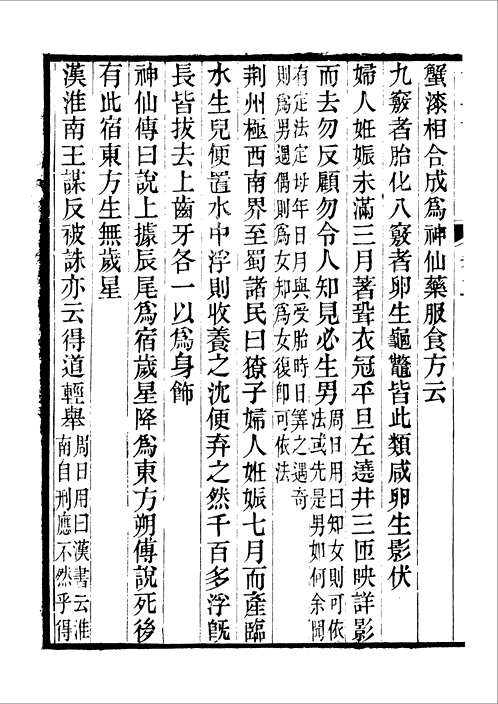 蟹漆相合成爲神仙藥服食方云
九竅者胎化八竅者卵生龜鼈皆此類咸卵生影伏
婦人姙娠未滿三月著壻衣冠平旦左遶井三匝映詳影
而去勿反顧勿令人知見必生男
周日用曰知女則可依
法或先是男如何余聞
有定法定坶年日月與受胎時日筭之遇奇
則爲男遇偶則爲女知爲女復即可依法
荆州極西南界至蜀諸民曰獠子婦人姙娠七月而產臨
水生兒便置水中浮則收養之沈便弃之然千百多浮旣
長皆拔去上齒牙各一以爲身飾
神仙傳曰說上據辰尾爲宿歲星降爲東方朔傅說死後
有此宿東方生無歲星
漢淮南王謀反被誅亦云得道輕舉
周日用曰漢書云淮
南自刑應不然乎得